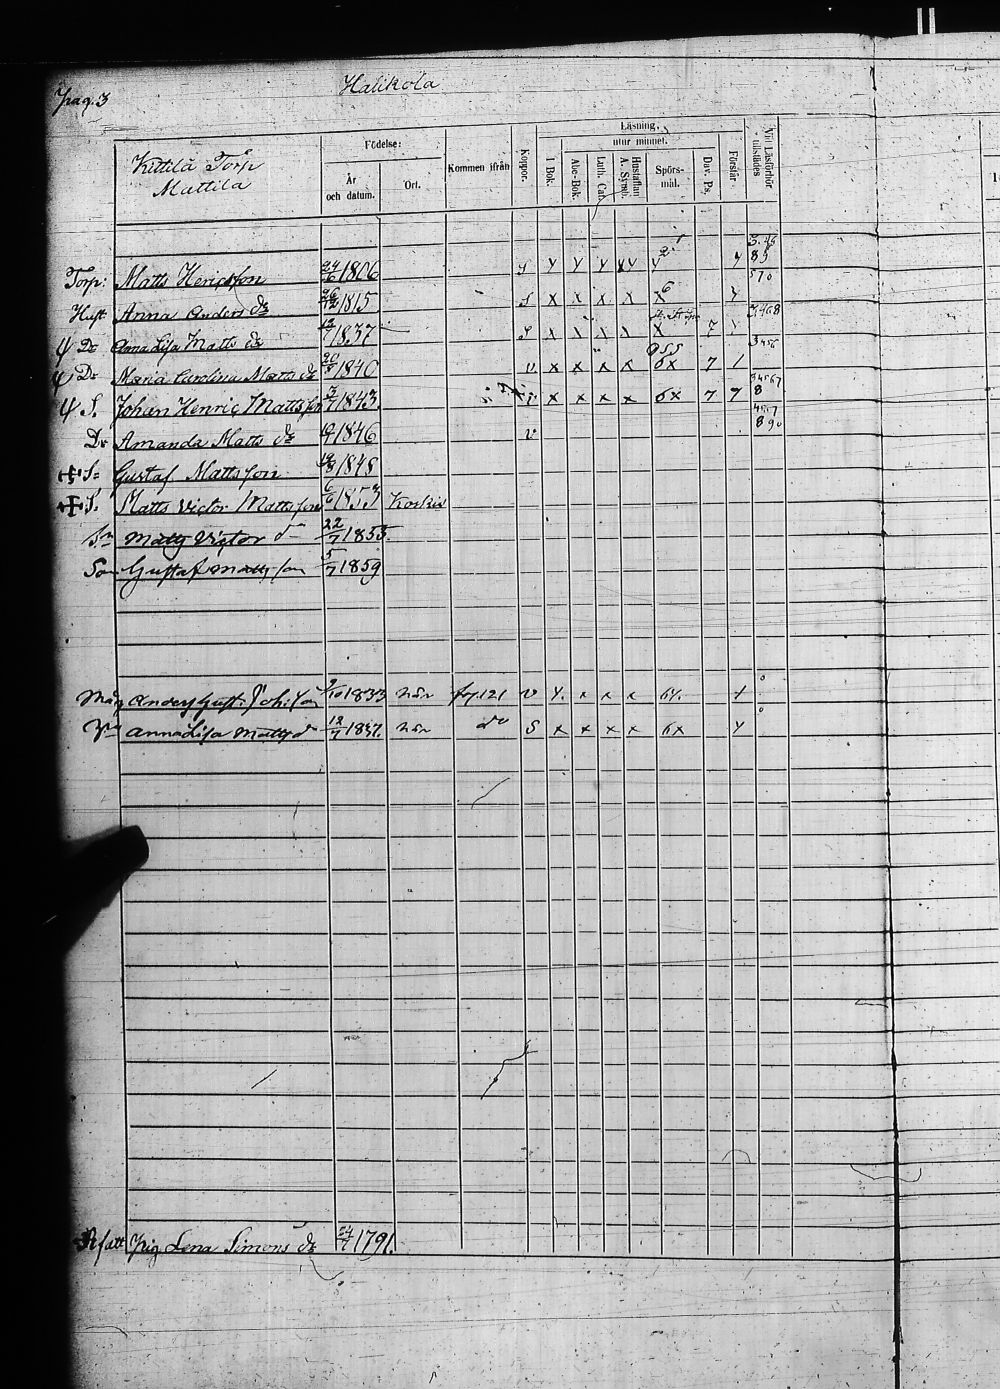 Pag. 3
Halikola
Kittilä Torp
Mattila
Födelse:
År
och datum.
Ort.
Kommen ifrån
Koppor.
Läsning,
I Bok.
utur minnet.
Abc-Bok.
Luth. Cat.
Hustaflan
A. Symb.
Spörs-
mål.
Dav. Ps.
Förstår
Vid Läsförhör
tillstädes
Torp: Matts Henricsson 24/6 1806 s y y y y y y
Hust Anna Anders dr 26/12 1815 s x x x x x y
Dr Anna Lisa Matts dr 12/7 1837 s x x x x x 7
Dr Maria Carolina Matts dr 20/8 1840 v x x x x 6x 7 1
S. Johan Henric Mattsson 3/7 1843 v x x x x 6x 7 7
Dr Amanda Matts dr 19/7 1846 v
S: Gustaf Mattsson 19/8 1848
S. Matts Victor Mattsson 6/6 1853 Koskis
Sn Matts Victor d 22/7 1855
Son Gustaf Mattsson 5/7 1859
Måg Anders Gust. Joh:son 9/10 1833 här pag. 121 v y. x x x 6y.
Anna Lisa Matts d 12/7 1837. här do s x x x x 6x y
Pig Lena Simons dr 24/7 1791.